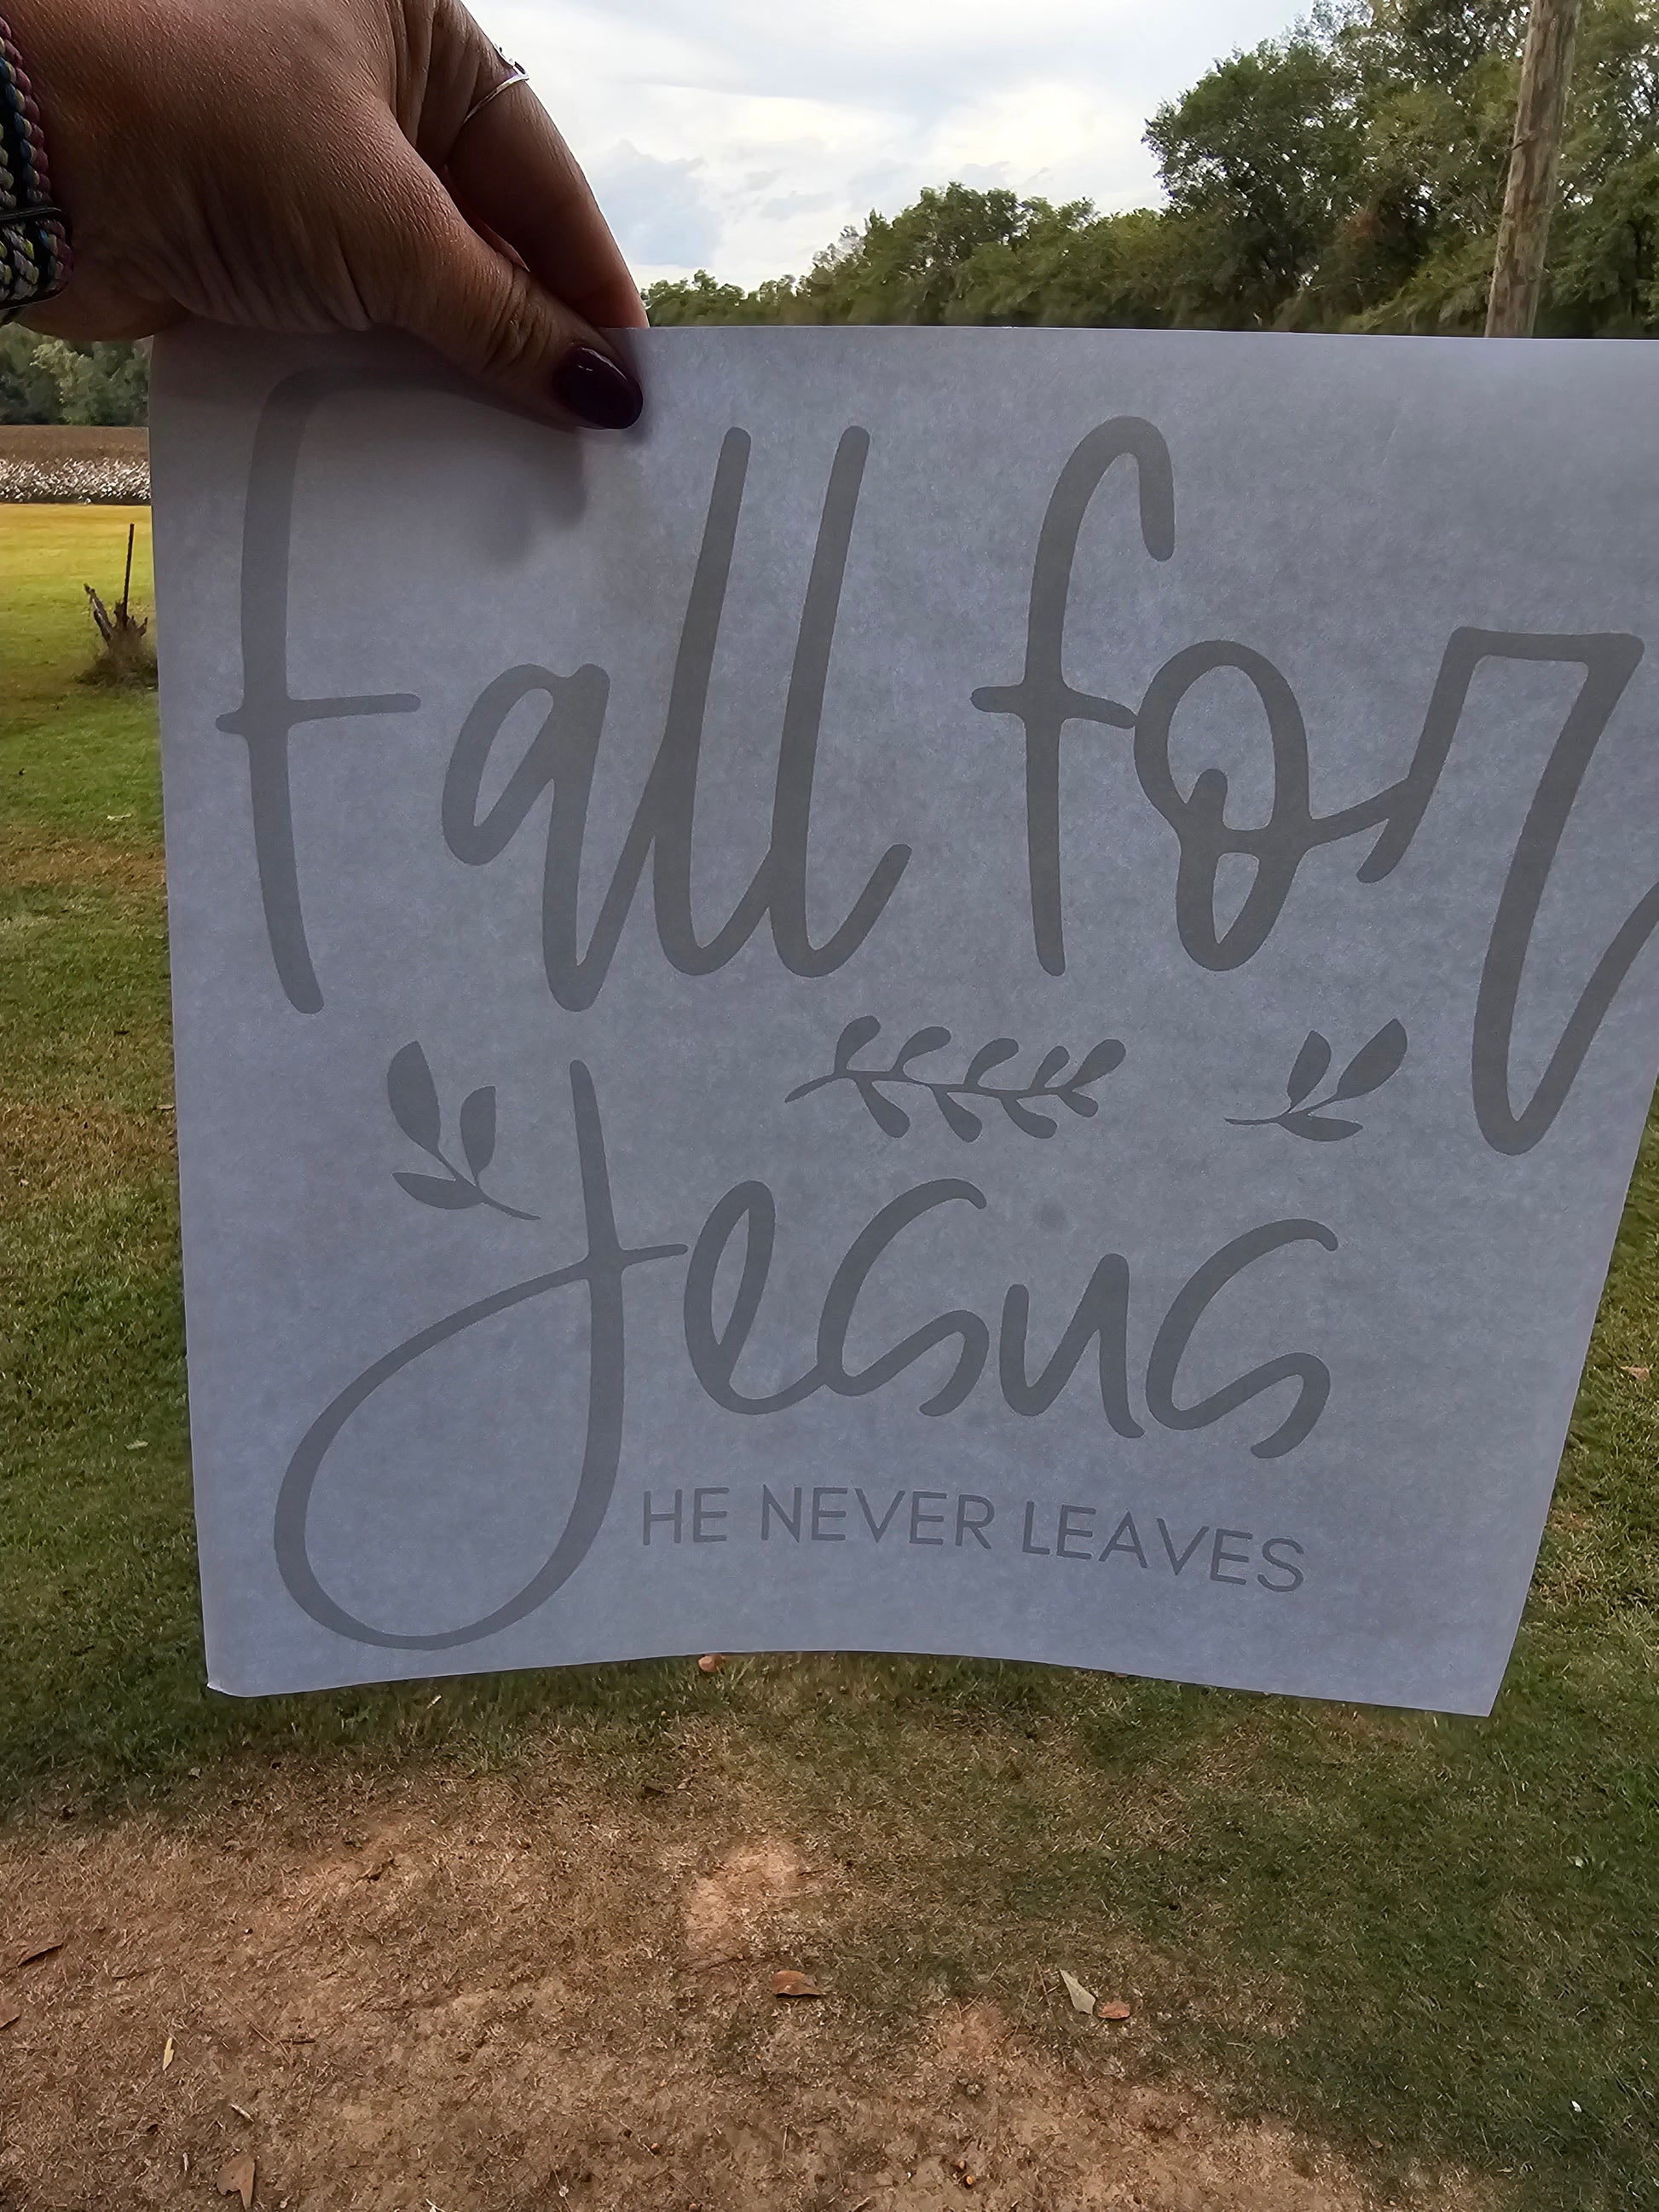 Fall for
Jesus
HE NEVER LEAVES